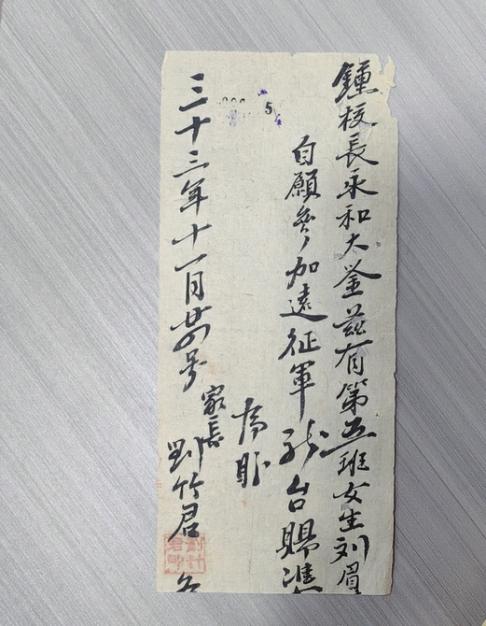 鍾校長永和大鋻茲有第五班女生刘眉
自願參加遠征軍 台賜準
為
三十三年十一月廿四号
家長
劉竹君
5